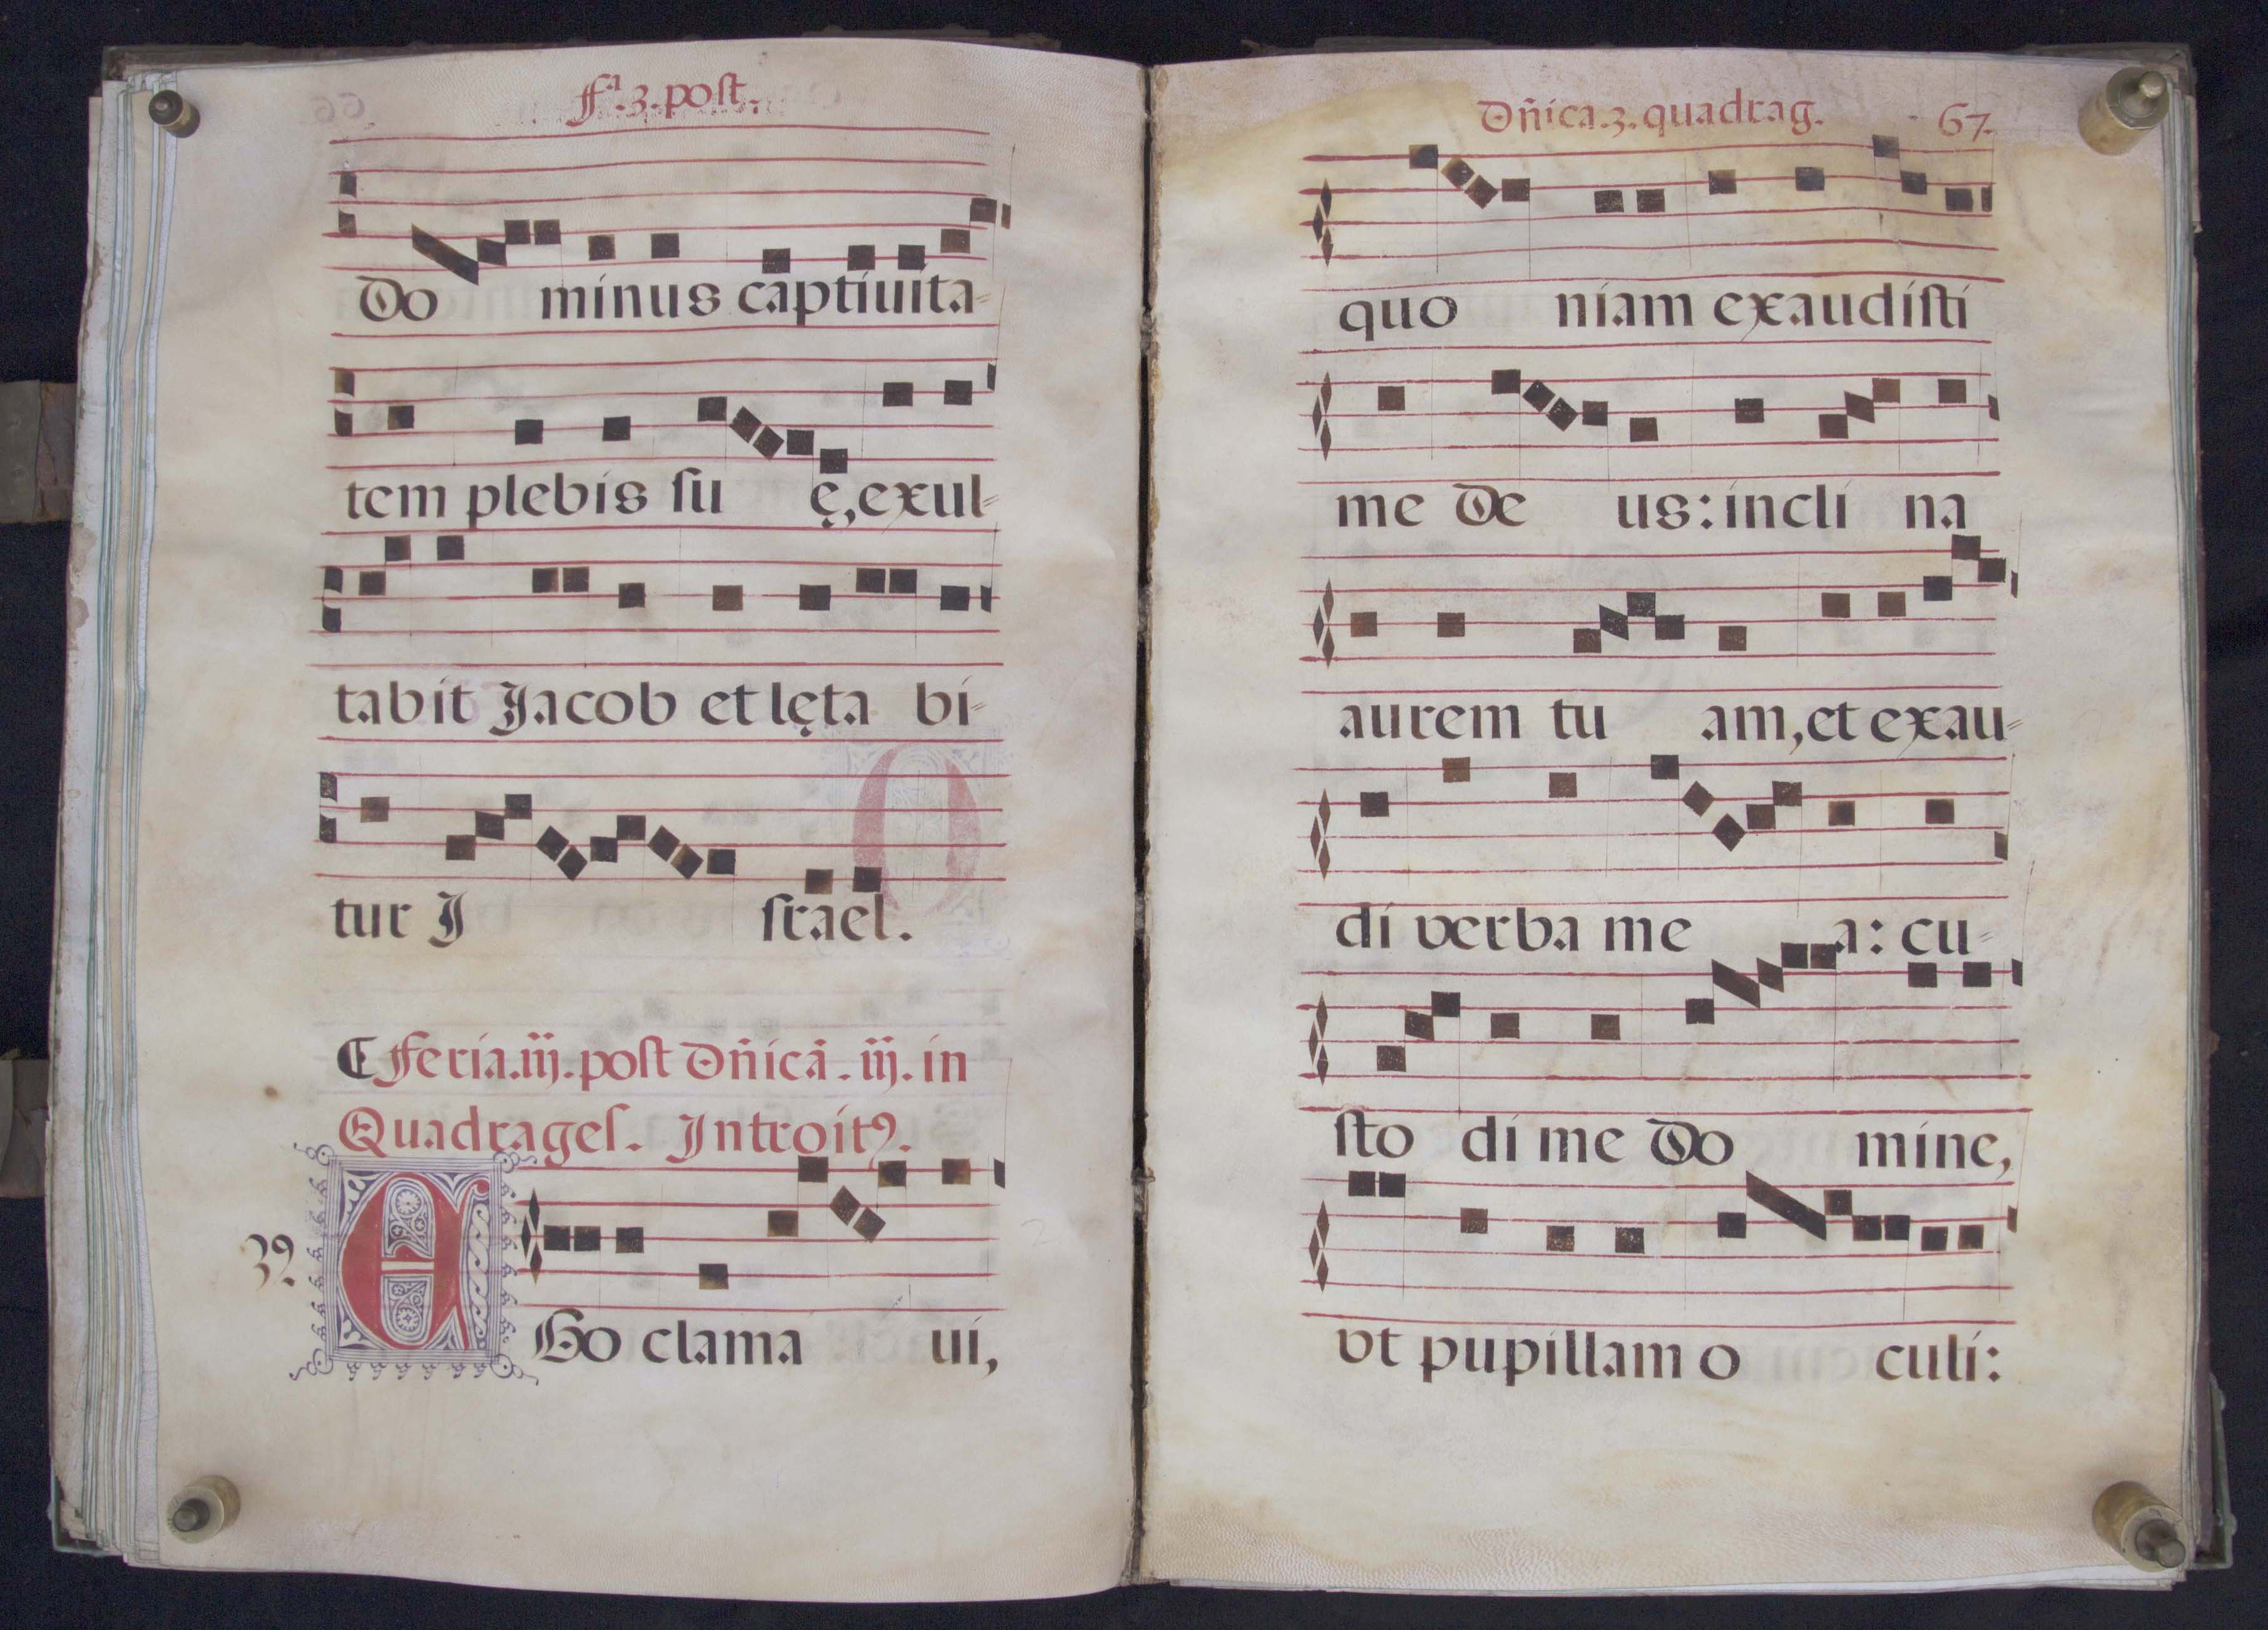 fa.3.post.
Do minus captiuita-
tem plebis su ę, exul-
tabit Jacob et lęta bi-
tur J srael.
Feria.iij.post Dn̄icā.iij.in
Quadrages. Introit9.
EGo clama ui,
Dn̄ica.3.quadrag. 67.
quo niam exaudisti
me De us: incli na
aurem tu am, et exau-
di verba me a: cu-
sto di me Do mine,
vt pupillam o culi: